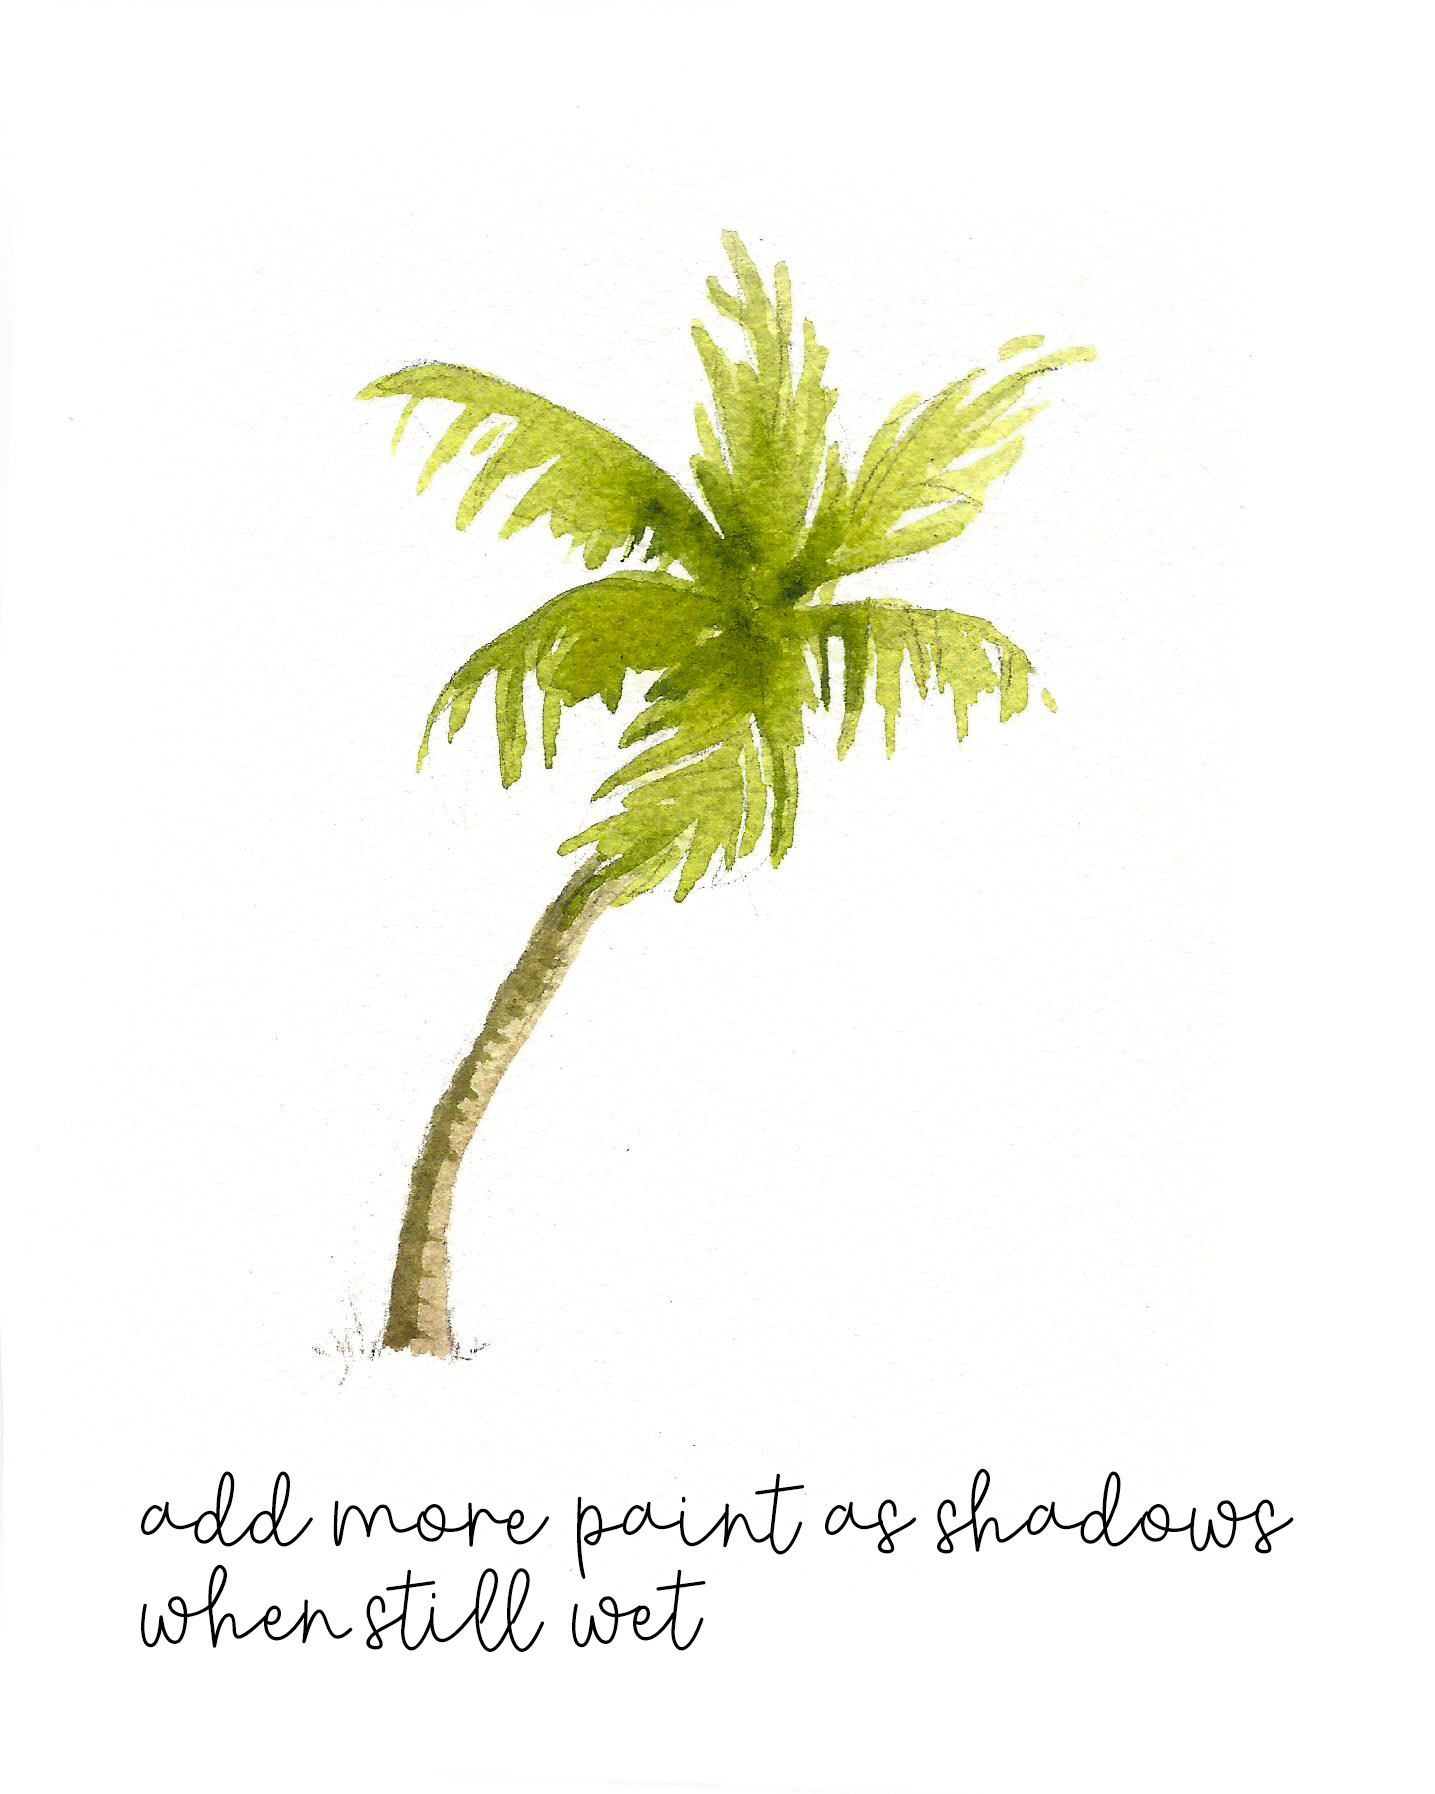 add more paint as shadows
when still wet